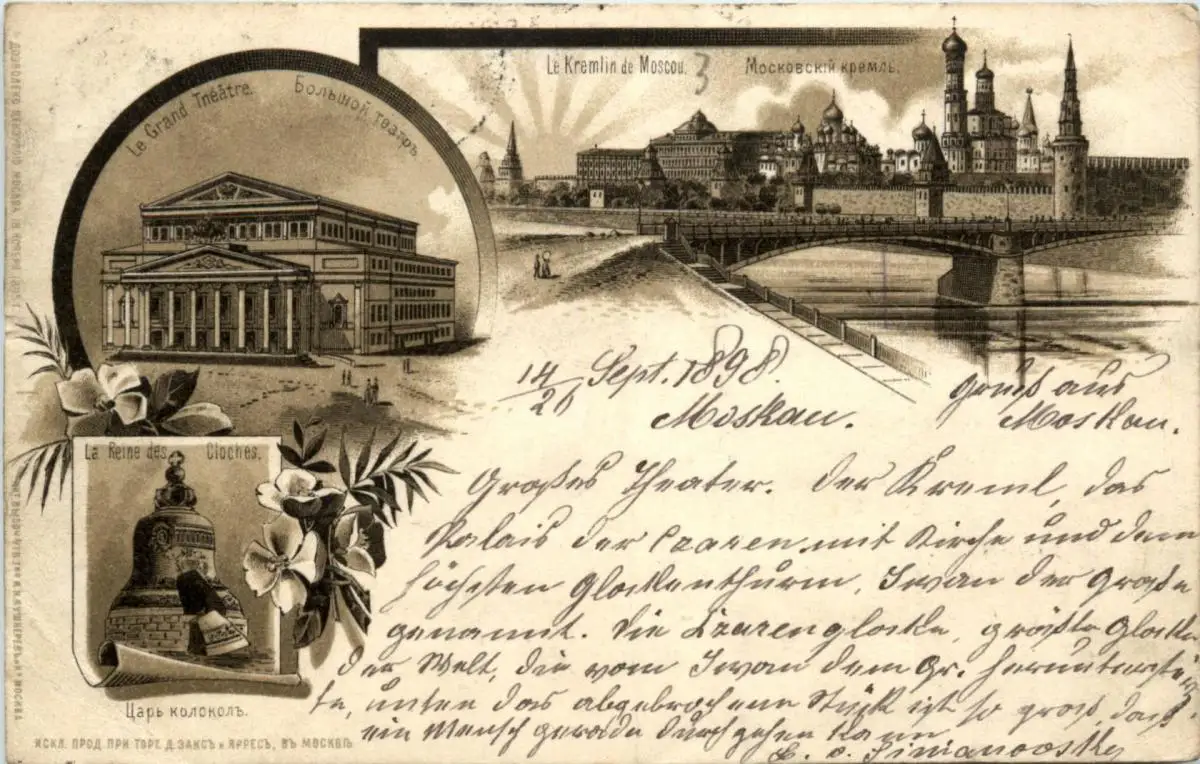 Le Kremlin de Moscou. 3 Московскій кремль.
Le Grand Théâtre. Большой театръ
14/26 Sept. 1898.
Moskau.
Gruß aus
Moskau.
La Reine des Cloches.
Großes Theater. Der Kreml, das
Palais der Czaren mit Kirche und dem
höchsten Glockenthurm, Iwan der Große
genannt. Die Czarenglocke, größte Glocke
der Welt, die vom Iwan dem Gr. herunterstürz
te, unten das abgebrochene Stück ist so groß, daß
ein Mensch gerade durchgehen kann
Царь колоколъ.
ИСКЛ. ПРОД. ПРИ ТОРГ. Д. ЗАКСЪ и ЯРРЕСЪ, ВЪ МОСКВѢ
E. v.
ДОЗВОЛЕНО ЦЕНЗУРОЮ МОСКВА